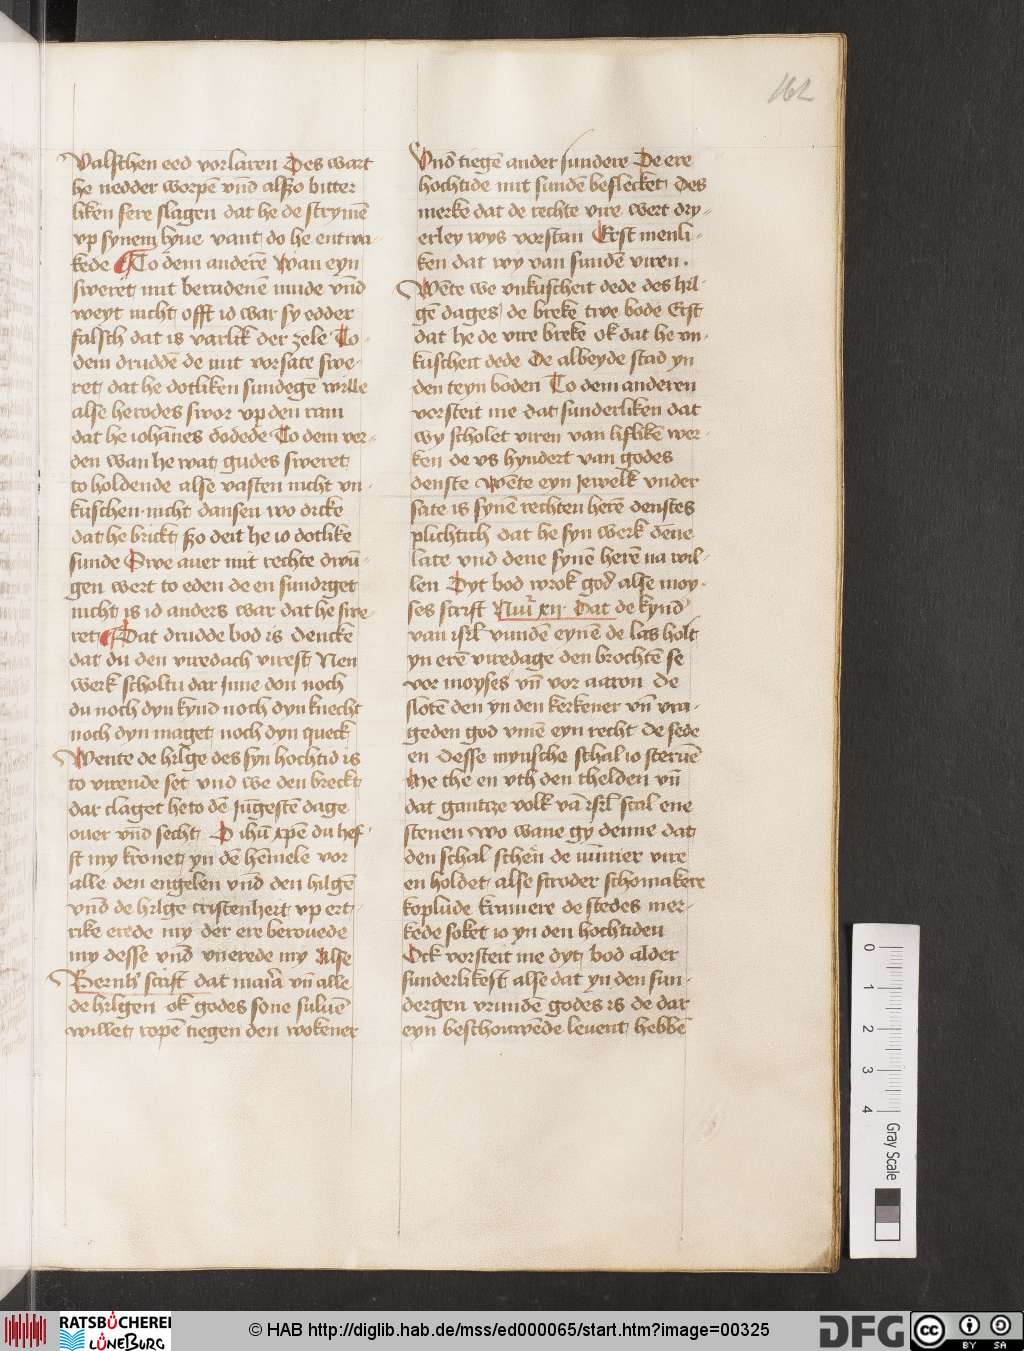 162
Valschen eed vorlaren Des wart
he nedder worpē vnd alszo bitter
liken sere slagen dat he de strymē
vp synem lyue vant do he entwa-
kede ¶ To dem anderē Wan eyn
sweret mit beradenē mude vnd
weyt nicht offt id war sy edder
falsch dat is varlik der zele To
dem druddē de mit vorsate swe-
ret dat he dotliken sundegē wille
alse herodes swor vp den ram
dat he iohānes dodede To dem ver-
den wan he wat gudes sweret
to holdende alse vasten nicht vn-
kuschen nicht dansen wo dicke
dat he brickt szo deit he io dotlike
sunde Swe auer mit rechte dwū-
gen wert to eden de en sundiget
nicht is id anders war dat he swe-
ret ¶ Dat drudde bod is dencke
dat du den viredach virest Nen
werk scholtu dar Inne don noch
du noch dyn kynd noch dyn knecht
noch dyn maget noch dyn queck
Wente de hilge des syn hochtid is
to virende set vnd we den breckt
dar claget he to dē Iūgestē dage
ouer vnd secht O ihū xpē du hef-
st my kronet yn dē hēmele vor
alle den engelen vnd den hilgē
vnd de hilge cristenheit vp ert-
rike erede my der ere berouede
my desse vnd vnerede my Alse
Bernh scrift dat maria vn̄ alle
de hilgen ok godes sone suluē
willet ropē tiegen den wokener
Vnd tiegē ander sundere De ere
hochtide mit sundē beslecket Des
merke dat de rechte vire wert dry-
erley wys vorstan Erst menli-
ken dat wy van sundē viren.
Wēte we vnkuscheit dede des hil-
gē dages de breke twe bode Erst
dat he de vire breke ok dat he vn-
kuscheit dede De albeyde stad yn
den teyn boden To dem anderen
vorsteit me dat sunderliken dat
wy scholet viren van lislikē wer-
ken de vs hyndert van godes
denste Wēte eyn Iewelk vnder
sate is synē rechten herē denstes
plichtich dat he syn werk dene
late vnd dene synē herē na wil-
len Dyt bod wrok god alse moy-
ses scrift Nūi xv Dat de kynd
van isrl vundē eynē de las holt
yn erē viredage den brochtē se
vor moyses vn̄ vor aaron De
slotē den yn den kerkener vn̄ vra-
geden god vmē eyn recht De sede
en Desse mynsche schal io steruē
Me the en vth den thelden vn̄
dat gantze volk vā isrl scal ene
stenen Wo wane gy denne dat
den schal schen de nūmer vire
en holdet alse scroder schomakere
koplude kramere de stedes mer-
kede soket io yn den hochtiden
Ock vorsteit me dyt bod alder
sunderlikest alse dat yn den sun-
dergen vrundē godes is de dar
eyn beschouwēde leuent hebbē
0
1
2
3
4
Gray Scale
RATSBÜCHEREI
LÜNEBURG
© HAB http://diglib.hab.de/mss/ed000065/start.htm?image=00325
DFG
cc
BY SA